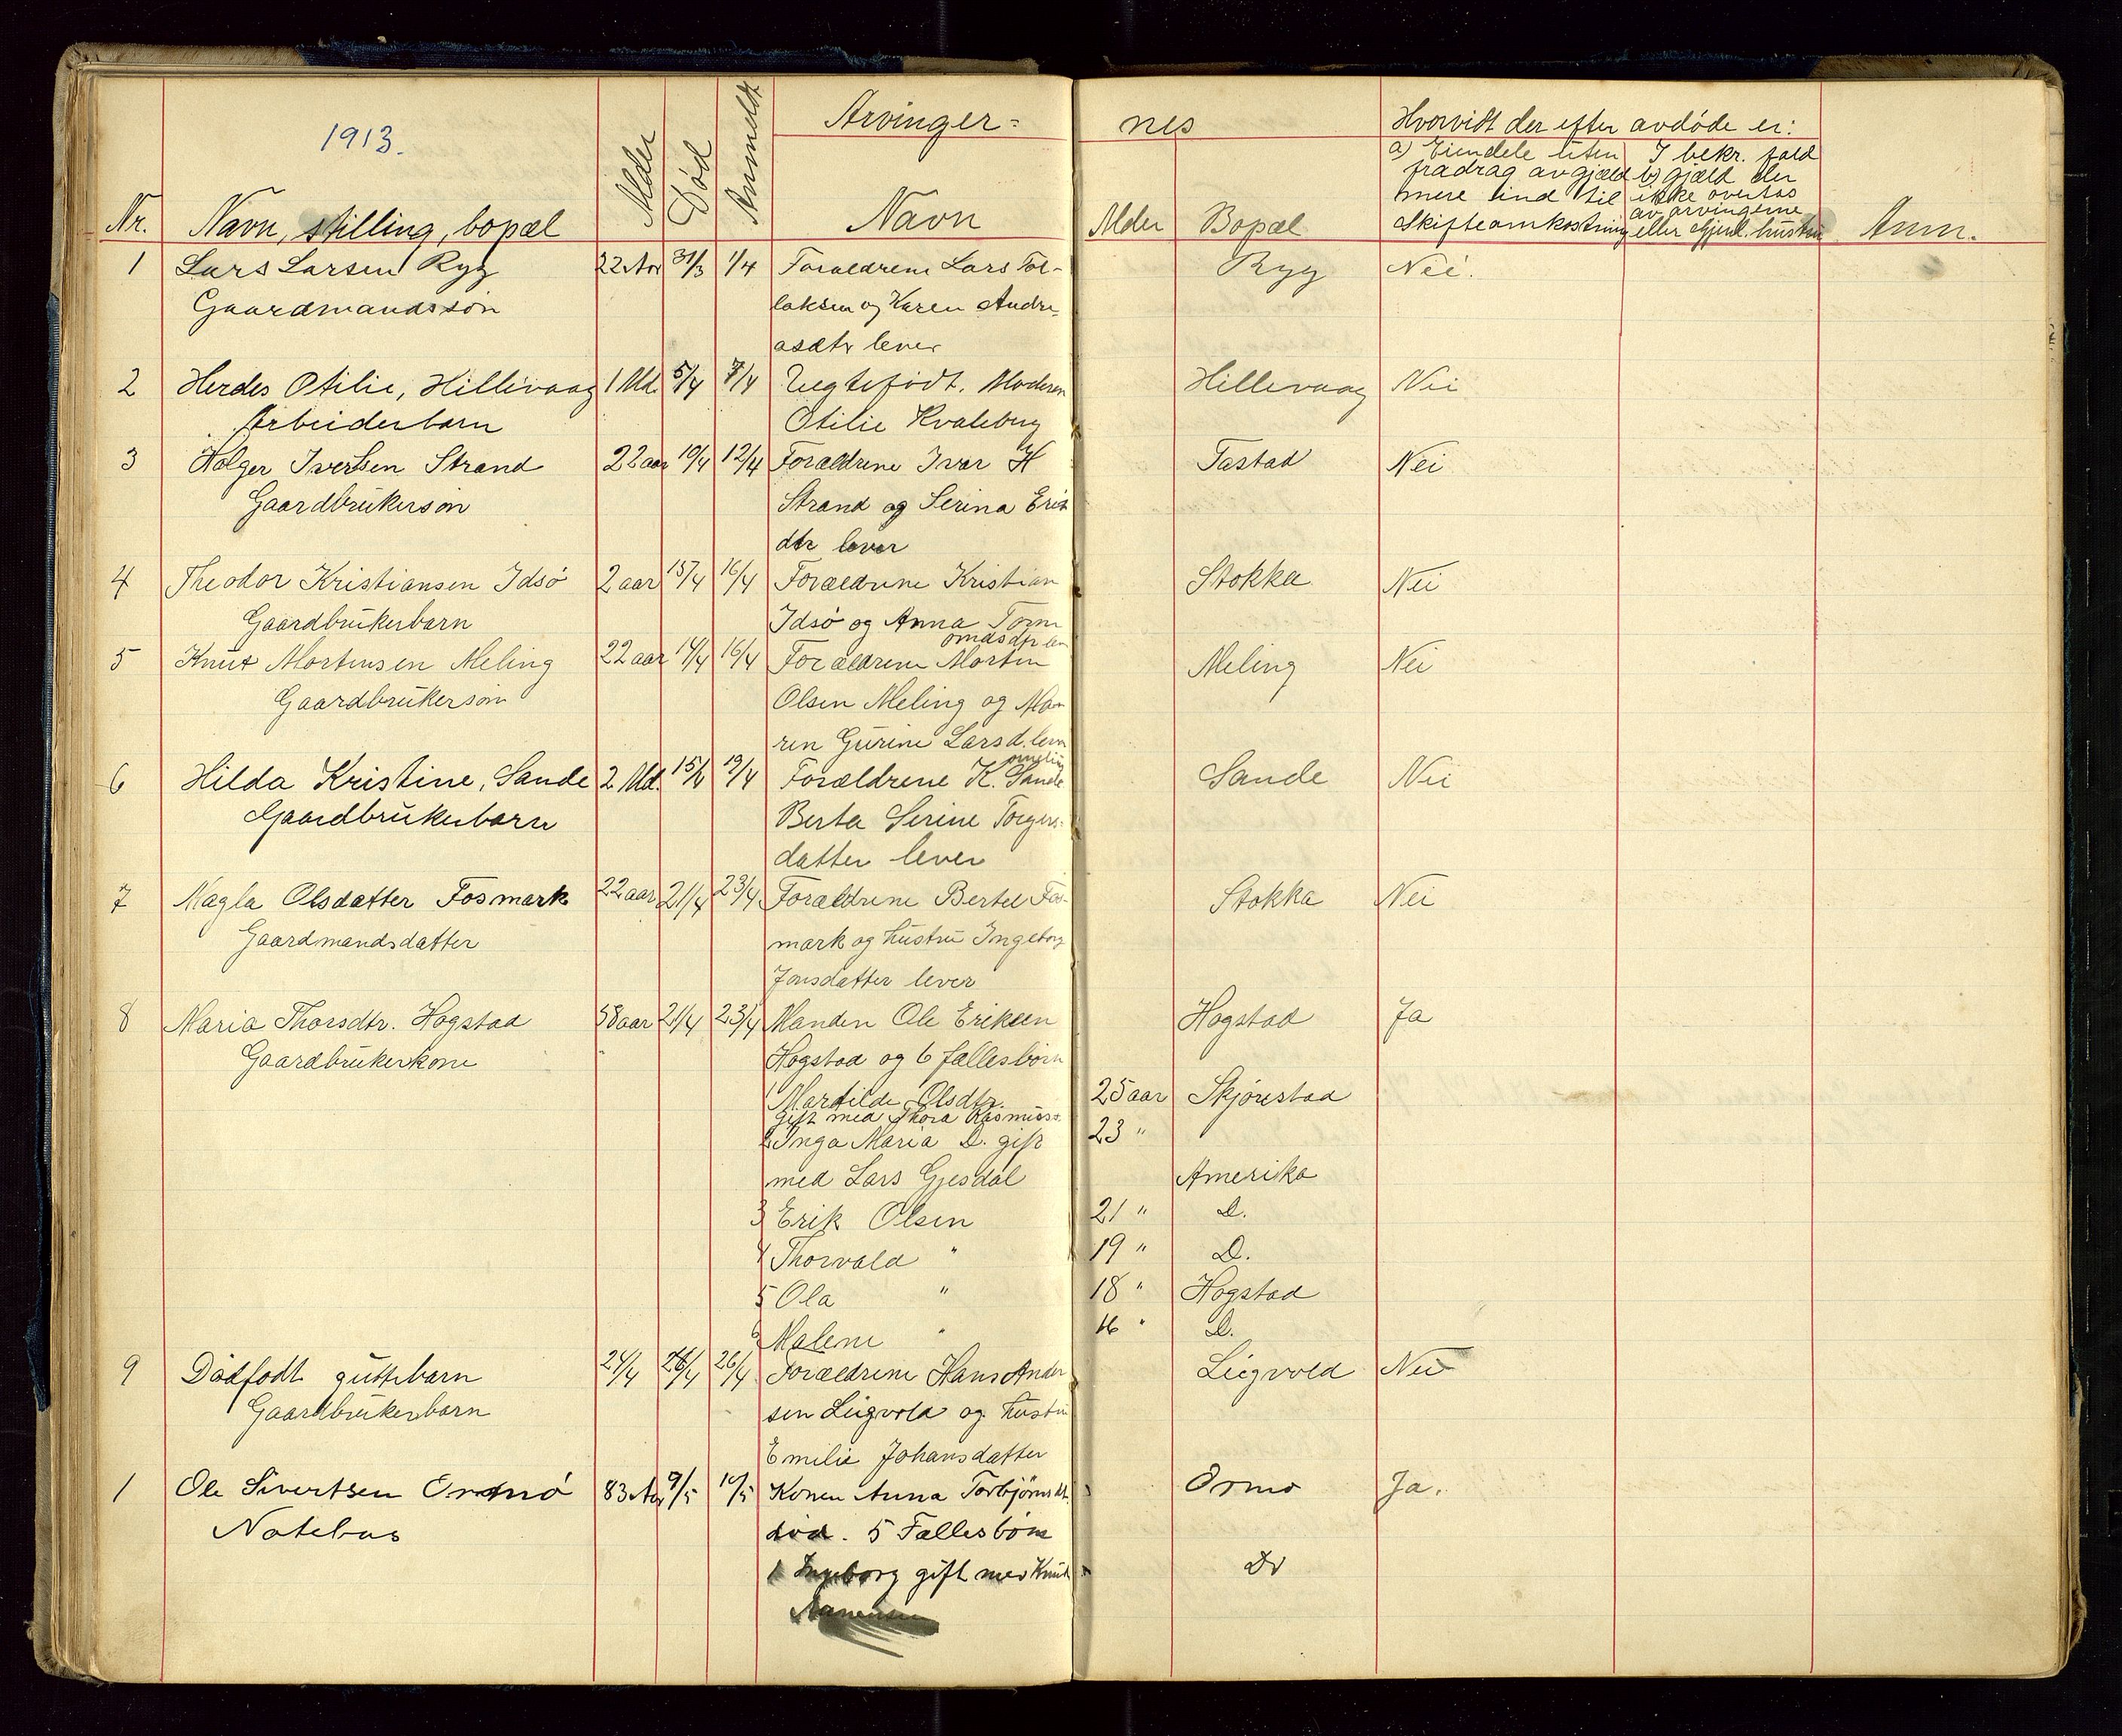 1913.
Arvinger=
nes
Hvorvidt der efter avdøde er:
a) Eiendele uten
fradrag av gjæld
mere end til
Skifteomkostning
I bekr. fald
b) gjæld der
ikke overtas
av arvingerne
eller gjenl. hustru
Nr. Navn, stilling, bopæl Alder Død Anmeldt Navn Alder Bopæl Anm.
1 Lars Larsen Ryg 22 Aar 31/3 1/4 Forældrene Lars Tol- Ryg Nei.
Gaardmandssøn laksen og Karen Andre
asdtr lever
2 Herdes Otilie, Hillevaag 1 Md. 5/4 7/4 Uegtefødt. Moderen Hillevaag Nei
Arbeiderbarn Otilie Kvaleberg
3 Holger Iversen Strand 22 aar 10/4 12/4 Forældrene Ivar H Tastad Nei
Gaardbrukersøn Strand og Serina Eriks
dtr lever
4 Theodor Kristiansen Idsø 2 aar 15/4 16/4 Forældrene Kristian Stokka Nei
Gaardbrukerbarn Idsø og Anna Torm
omdsdtr
5 Knut Mortensen Meling 22 aar 14/4 16/4 Forældrene Morten Meling Nei
Gaardbrukersøn Olsen Meling og Ma
ren Gurine Larsd. lever
6 Hilda Kristine, Sande 2 Md. 15/4 19/4 Forældrene K. Sande Sande Nei
Gaardbrukerbarn Berta Serine Torgers-
datter lever
7 Magla Olsdatter Fosmark 22 aar 21/4 23/4 Forældrene Bertel Fos- Stokka Nei
Gaardmandsdatter mark og hustru Ingeborg
Jonsdatter lever
8 Maria Thorsdtr. Hogstad 58 aar 21/4 23/4 Manden Ole Eriksen Hogstad Ja
Gaardbrukerkone Hogstad og 6 fællesbörn
1 Martilde Olsdtr. 25 aar Skjørestad
gift med Thora Rasmuss.
2 Inga Maria D. gift 23 "
med Lars Gjesdal Amerika
3 Erik Olsen 21 " D.
4 Thorvald " 19 " D.
5 Ola " 18 " Hogstad
6 Malene " 16 " D.
9 Dødfødt guttebarn 24/4 26/4 26/4 Forældrene Hans Ander Liegvold Nei
Gaardbrukerbarn sen Liegvold og hustru
Emilie Johansdatter
1 Ole Sivertsen Ormø 83 Aar 9/5 10/5 Konen Anna Torbjörnsdt. Ormø Ja.
Notebas død. 5 Fællesbörn
1 Ingeborg gift med Knut Do